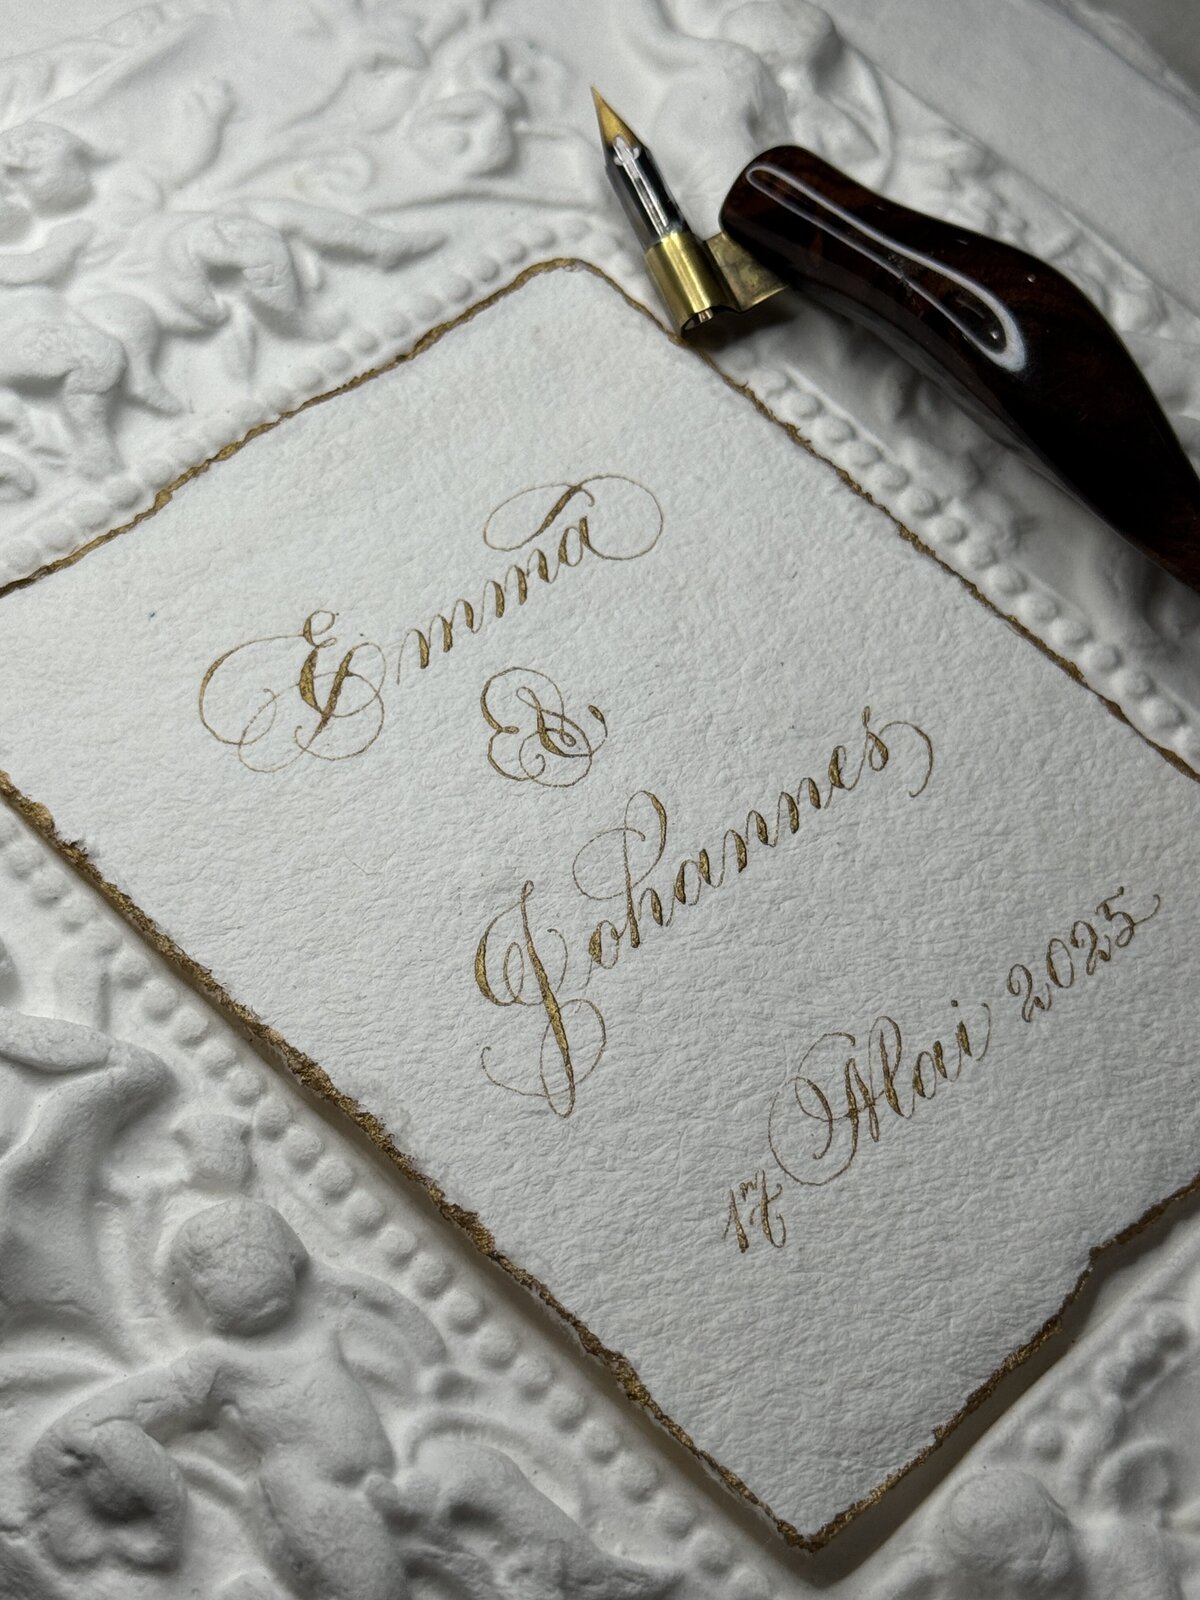 Emma
&
Johannes
17 Mai 2025